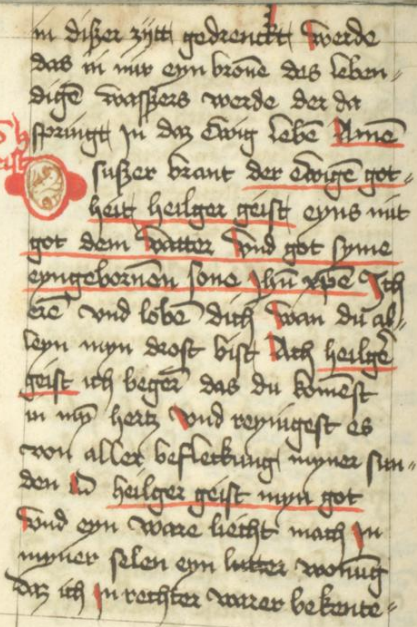 in dißer zÿtt gedrenckt werde
das in mir eyn brone des leben-
digē waßzers werde der da
springt In daz Ewig lebē Amē
O sußer brant der Ewigē got-
heit heilger geist eyns mit
got dem vatter vnd got syme
eyngebornen sone Jhū xpē Ich
erē vnd lobē dich wan du al-
leyn myn drost bist Ach heilgē
geist ich beger das du komest
in mȳ hertz vnd reynigest es
von aller befleckung myner sun-
den heilger geist myn got
vnd eyn ware liecht mach in
myner selen eyn lutter wonūg
daz ich in rechter warer bekente-